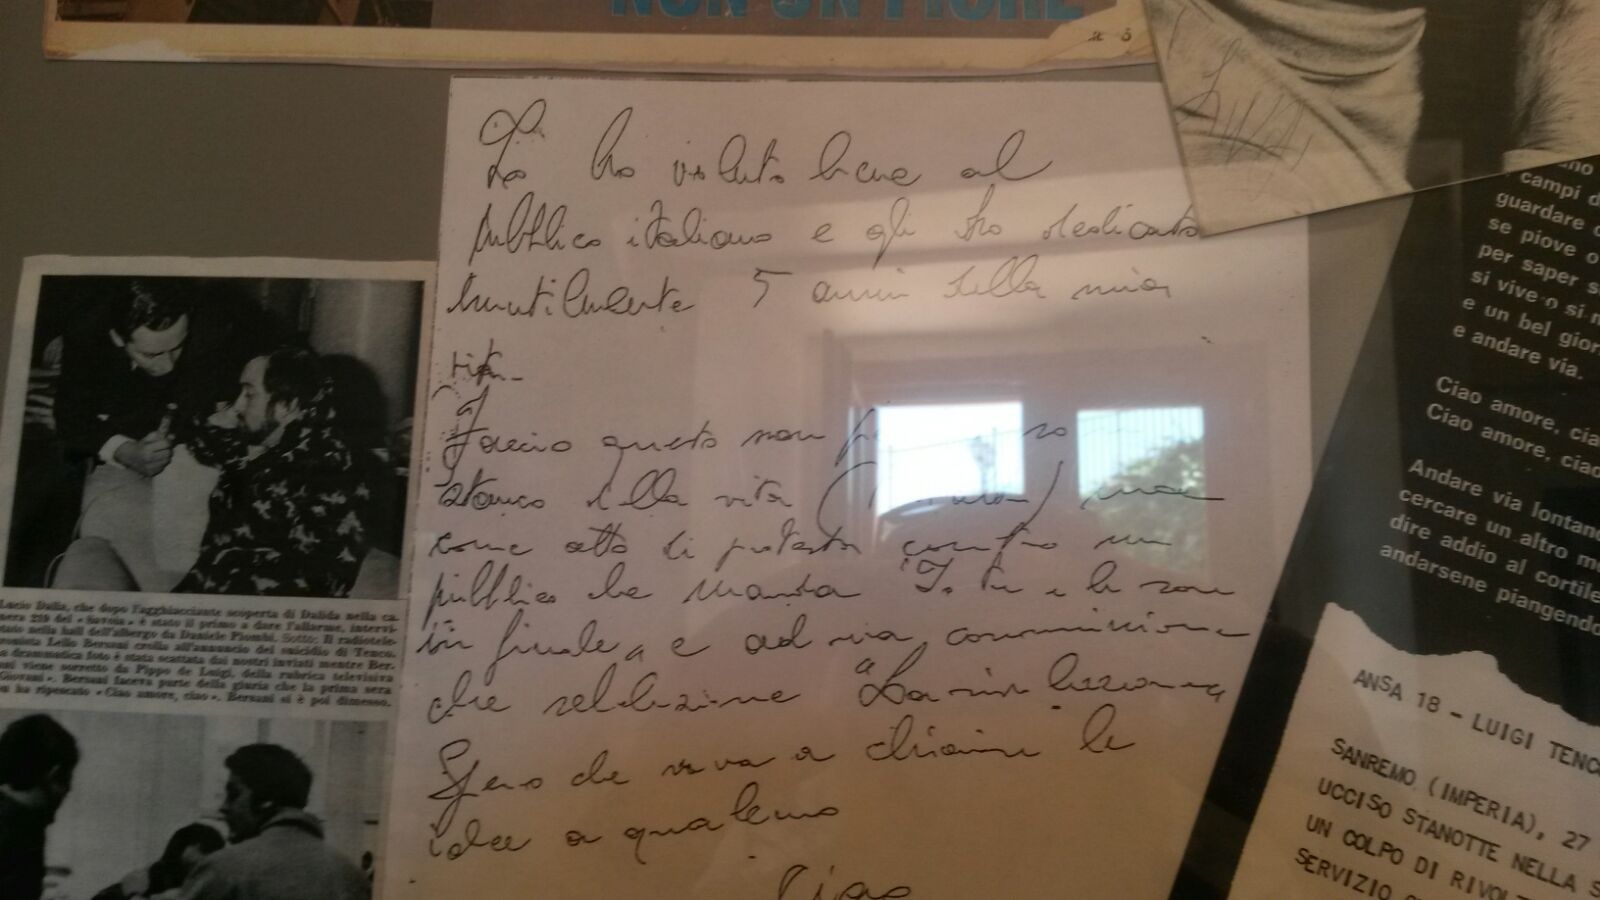 NON UN FIORE
Io ho voluto bene al
pubblico italiano e gli ho dedicato
inutilmente 5 anni della mia
vita.
Faccio questo non
stanco della vita ( ) ma
come atto di protesta contro un
pubblico che manda "Io tu e le rose
in finale" e ad una commissione
che seleziona "La rivoluzione"
Spero che serva a chiarire le
idee a qualcuno
Ciao
Lucio Dalla, che dopo l'agghiacciante scoperta di Dalida nella ca-
mera 219 del «Savoia» è stato il primo a dare l'allarme, intervi-
stato nella hall dell'albergo da Daniele Piombi. Sotto: Il radiotele-
cronista Lello Bersani crolla all'annuncio del suicidio di Tenco.
a drammatica foto è stata scattata dai nostri inviati mentre Ber-
ani viene sorretto da Pippo de Luigi, della rubrica televisiva
Giovani». Bersani faceva parte della giuria che la prima sera
on ha ripescato «Ciao amore, ciao». Bersani si è poi dimesso.
campi d
guardare
se piove o
per saper s
si vive o si m
e un bel gior
e andare via.
Ciao amore, cia
Ciao amore, ciao
Andare via lontano
cercare un altro mo
dire addio al cortile
andarsene piangendo
ANSA 18 - LUIGI TENCO
SANREMO (IMPERIA), 27
UCCISO STANOTTE NELLA S
UN COLPO DI RIVOLT
SERVIZIO